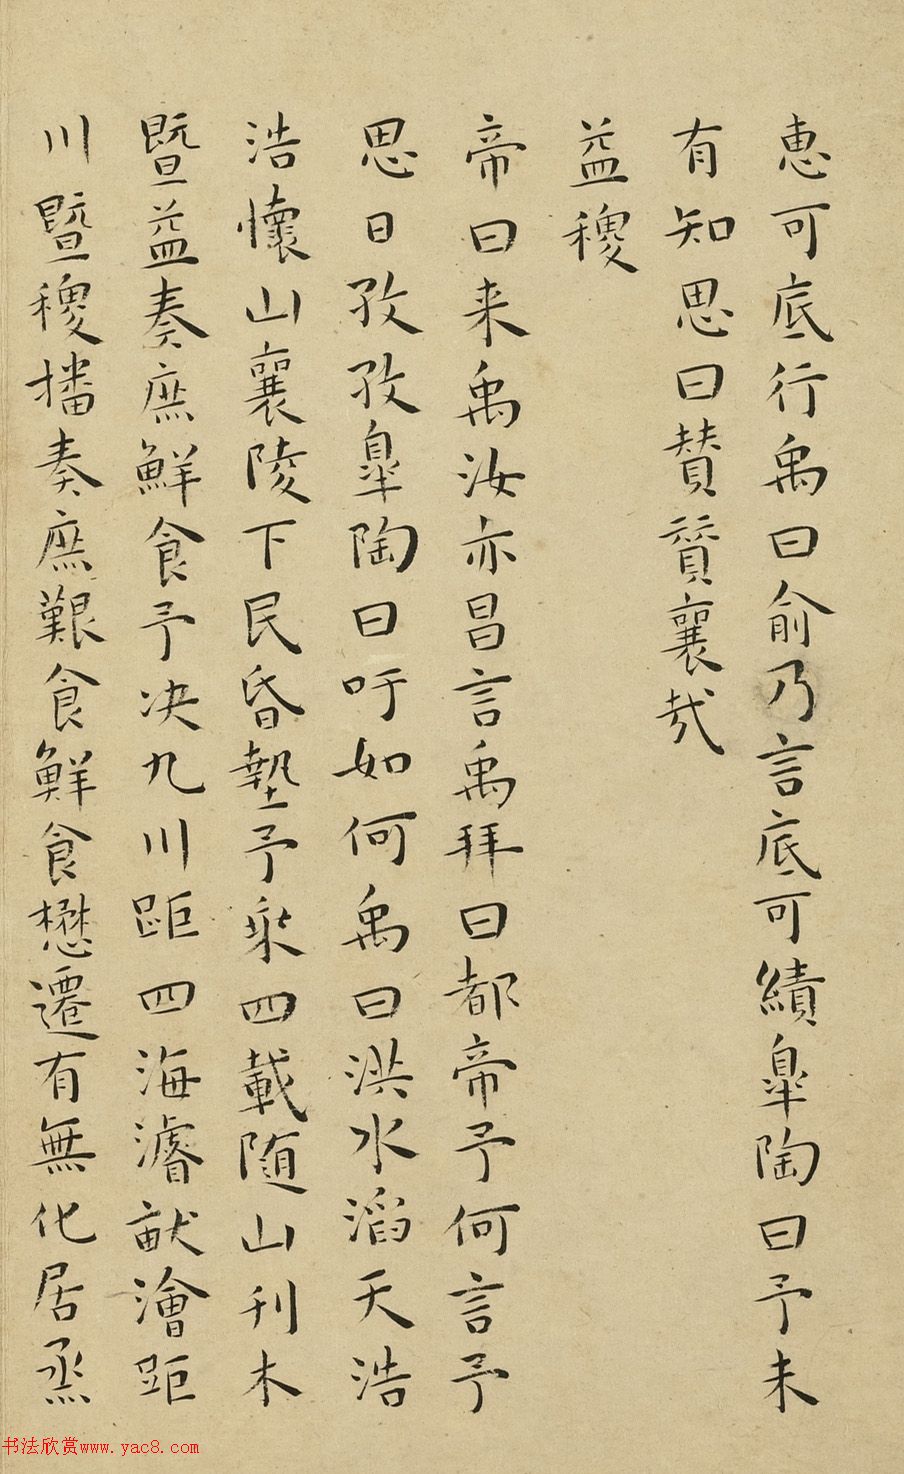 惠可底行禹曰俞乃言底可績皐陶曰予未
有知思曰贊贊襄哉
益稷
帝曰来禹汝亦昌言禹拜曰都帝予何言予
思日孜孜皐陶曰吁如何禹曰洪水滔天浩
浩懷山襄陵下民昏墊予乘四載随山刊木
暨益奏庶鮮食予决九川距四海濬畎澮距
川暨稷播奏庶艱食鮮食懋遷有無化居烝
书法欣赏www.yac8.com